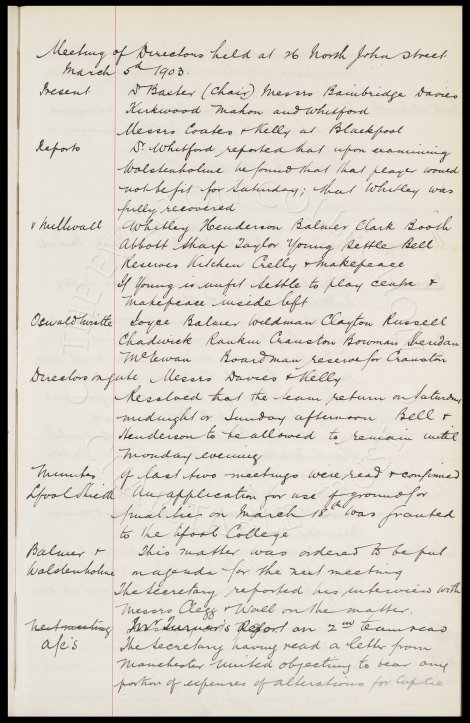 Meeting of Directors held at 26 North John Street
March 5th 1903.
Present Dr Baxter (Chair) Messrs Bainbridge Davies
Kirkwood Mahon and Whitford
Messrs Coates & Kelly at Blackpool
Reports Dr Whitford reported that upon examining
Wolstenholme he found that that player would
not be fit for Saturday; that Whitley was
fully recovered
v Millwall Whitley Henderson Balmer Clark Booth
Abbott Sharp Taylor Young Settle Bell
Reserves Kitchen Crelly & Makepeace
If Young is unfit Settle to play centre &
Makepeace inside left
Oswaldtwistle Joyce Balmer Wildman Clayton Russell
Chadwick Rankin Cranston Bowman Sheridan
McEwan Boardman reserve for Cranston
Directors on gate Messrs Davies & Kelly
Resolved that the team return on Saturday
midnight or Sunday afternoon Bell &
Henderson to be allowed to remain until
Monday evening
Minutes of last two meetings were read & confirmed
Lpool Shield An application for use of ground for
final tie on March 18th was granted
to the Lpool College
Balmer & This matter was ordered to be put
Wolstenholme on agenda for the next meeting
The Secretary reported his interview with
Messrs Clegg & Wall on the matter.
next meeting Mr Turner's Report on 2nd team read
a/c's The Secretary having read a letter from
Manchester United objecting to bear any
portion of expenses of alterations for Cup tie